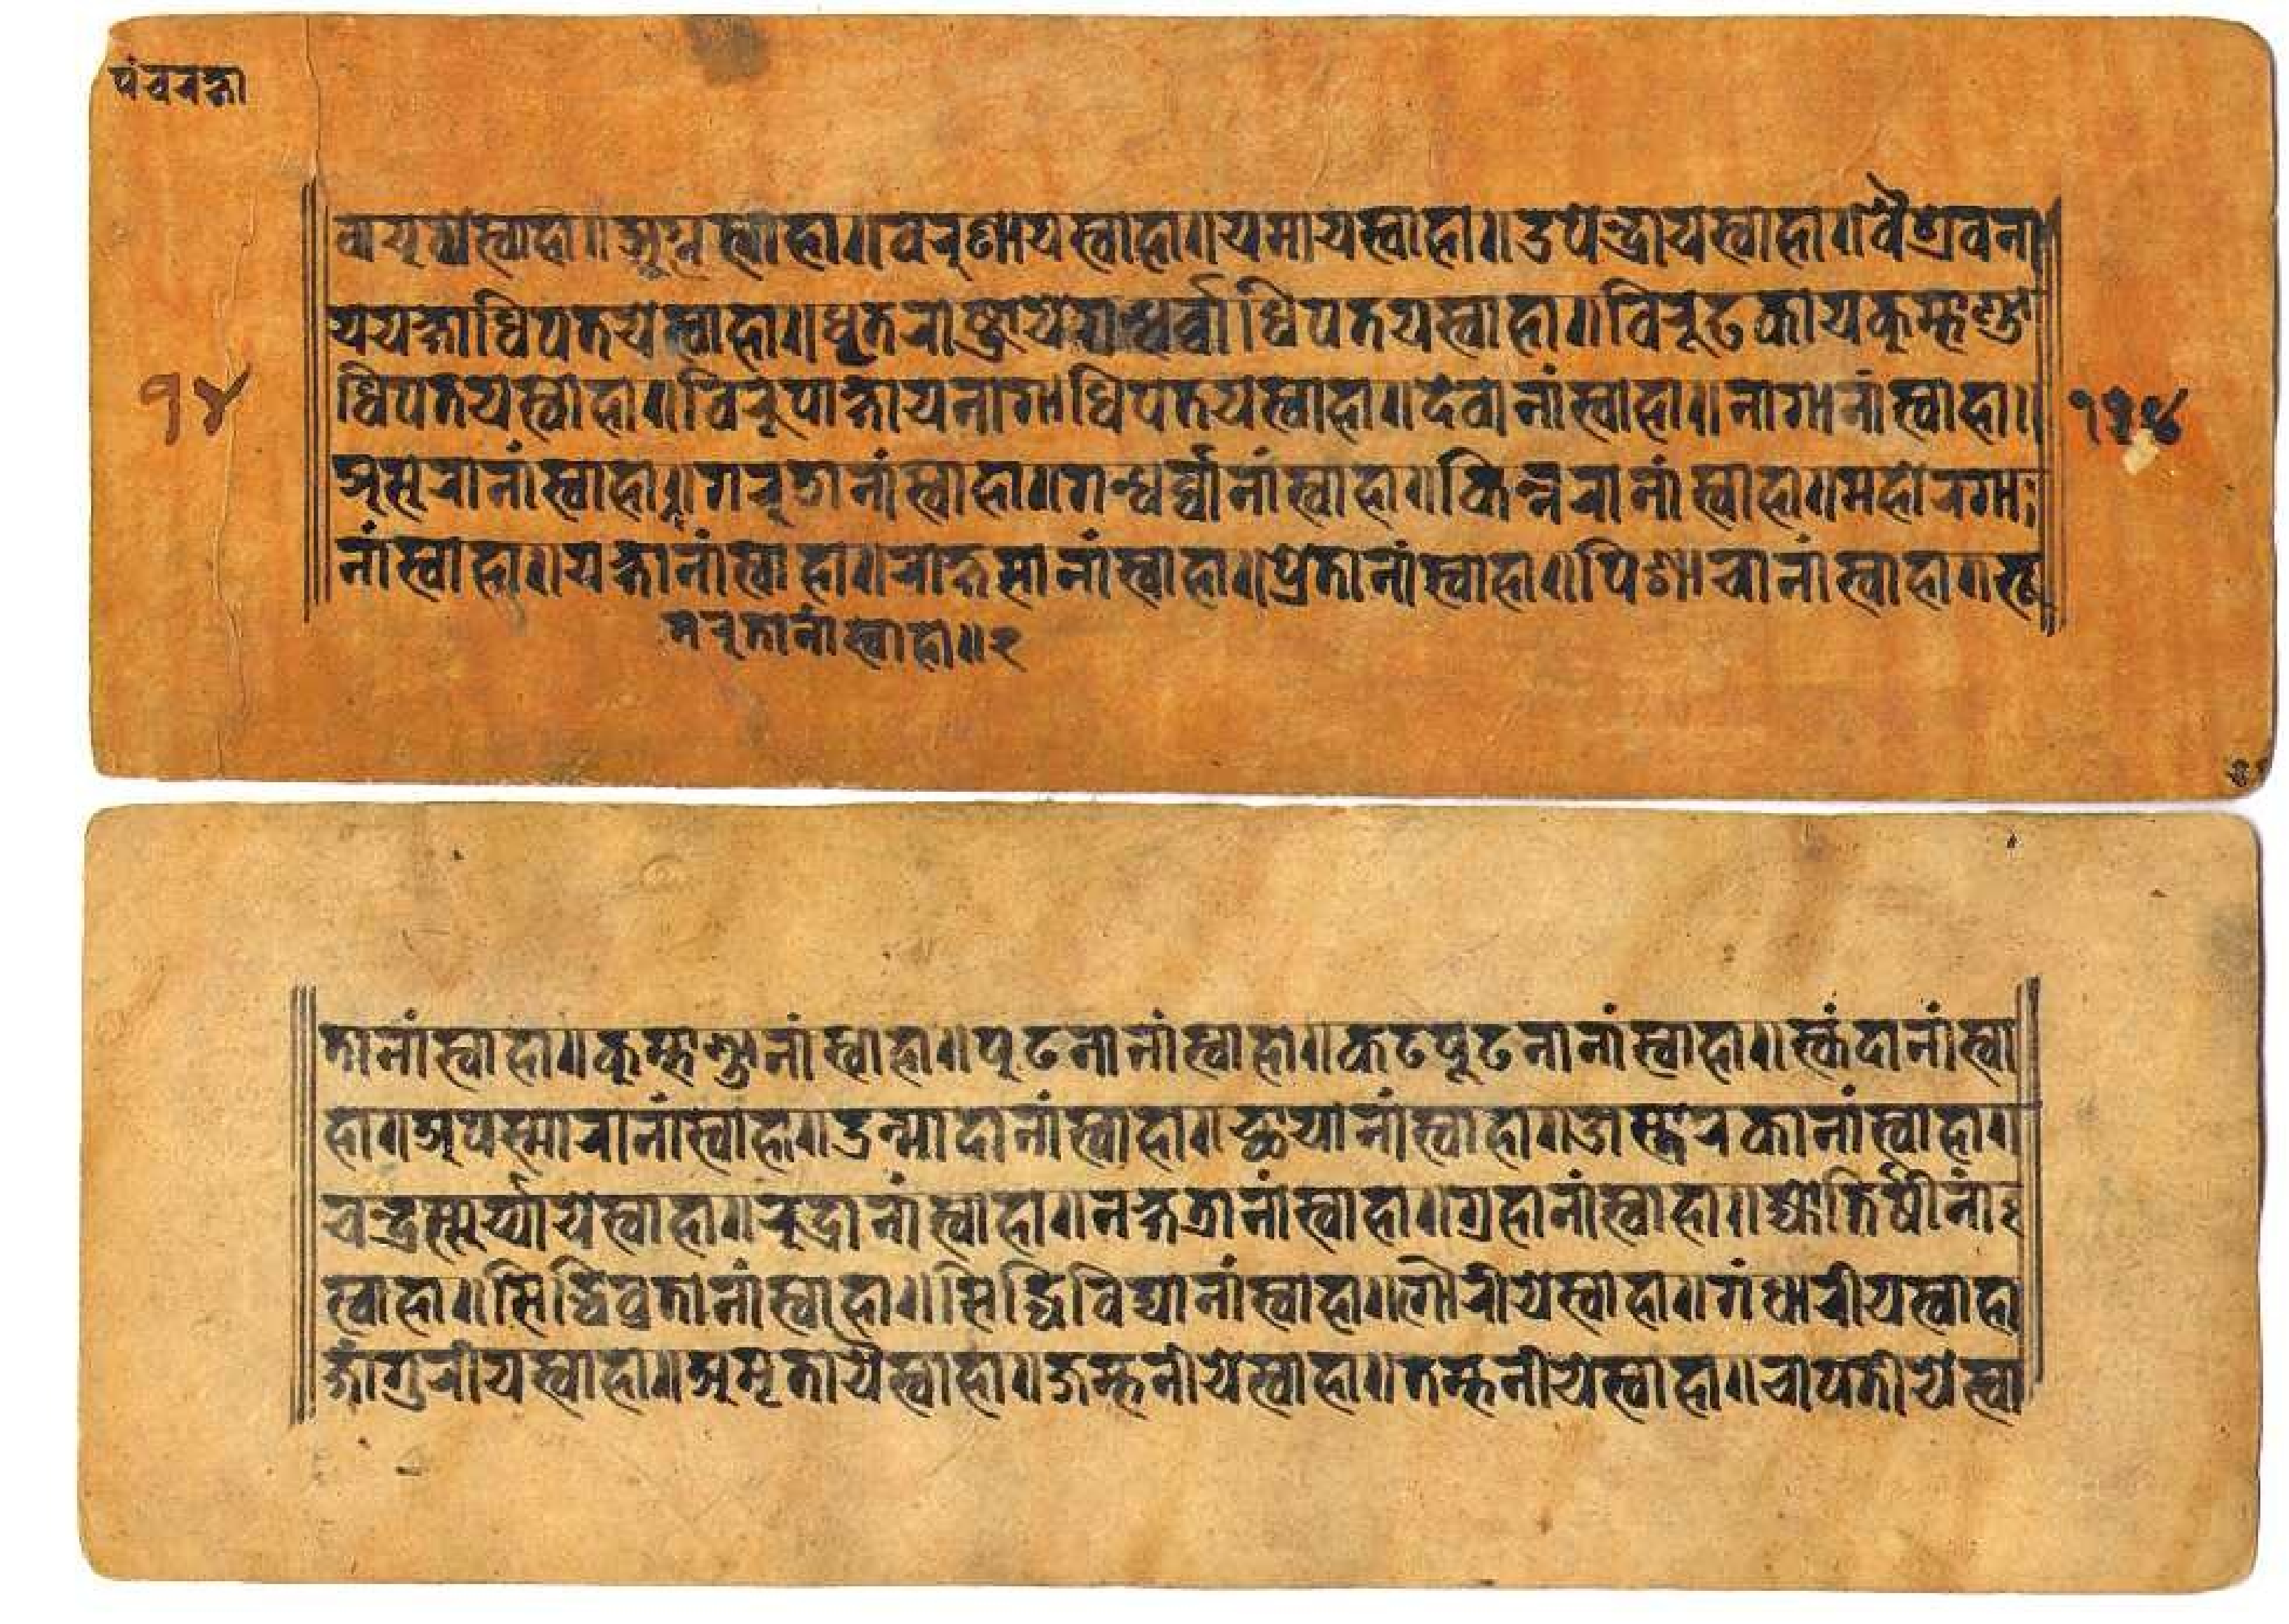 पंचरक्षा
वायुव्यस्वाहा॥अग्नस्वाहा॥वरुणायस्वाहा॥यमायस्वाहा॥उपेन्द्रायस्वाहा॥वैश्रेवना
ययक्षाधिपतयेस्वाहा॥धृतराष्ट्रायेगन्धर्वाधिपतयस्वाहा॥विरूढकायकुम्भाण्डा
१४
धिपतयस्वाहा॥विरूपाक्षायनागाधिपतयस्वाहा॥देवानांस्वाहा॥नागानांस्वाहा॥
११४
असुरानांस्वाहा॥गरुडानांस्वाहा॥गन्धर्व्वानांस्वाहा॥किन्नरानांस्वाहा॥महोरगा
नांस्वाहा॥यक्षानांस्वाहा॥राक्षसानांस्वाहा॥प्रेतानांस्वाहा॥पिशाचानांस्वाहा॥भू
मरुतानांस्वाहा॥२
तानांस्वाहा॥कुम्भाण्डानांस्वाहा॥पुटनानांस्वाहा॥कटपूटनानांस्वाहा॥स्कंदानांस्वा
हा॥अपस्मारानांस्वाहा॥उन्मादानांस्वाहा॥च्छायानांस्वाहा॥ओस्तारकानांस्वाहा॥
चन्द्रसूर्य्यायेस्वाहा॥रुद्रानांस्वाहा॥नक्षत्रानांस्वाहा॥ग्रहानांस्वाहा॥ज्योतिर्षीनां
स्वाहा॥सिद्धिव्रतानांस्वाहा॥सिद्धिविद्यानांस्वाहा॥गौरीयेस्वाहा॥गंधारीयस्वाहा
जांगुरीयस्वाहा॥अमृतायैस्वाहा॥जम्भनीयेस्वाहा॥तम्भनीयेस्वाहा॥चापतीयेस्वा